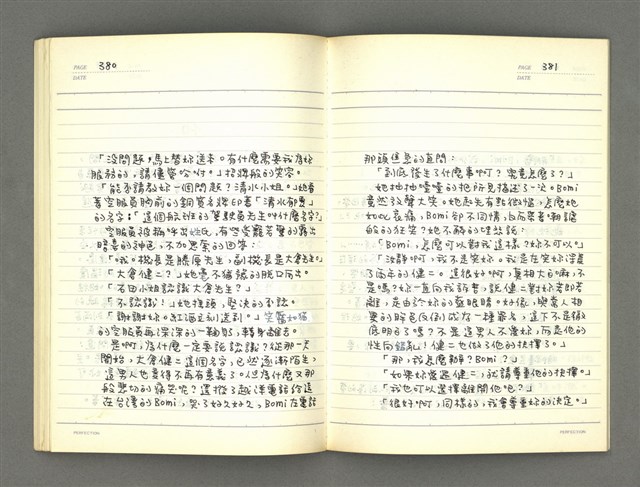 PAGE 380
DATE
「沒問題，馬上幫妳送來。有什麼需要我為妳
服務的，請儘管吩咐。」招牌般的笑容。
「能否請教妳一個問題？清水小姐。」她看
著空服員胸前的銅質名牌印著「清水郁惠」
的名字：「這個航班的駕駛員先生叫什麼名字？」
空服員被稱呼出姓氏，有些受寵若驚的露出
暗喜的神色，不加思索的回答：
「哦。機長是藤原先生，副機長是大倉先生。」
「大倉健二？」她毫不猶豫的脫口而出。
「石田小姐認識大倉先生？」
「不認識！」她搖頭，堅決的否認。
「謝謝妳。紅酒立刻送到。」笑靨如貓
的空服員再深深的一鞠躬，轉身離去。
是啊，為什麼一定要說認識？從那一天
開始，大倉健二這個名字，已然逐漸陌生，
這男人也變得不再有意義了。但為什麼又那
般悲切的痛哭呢？還撥了越洋電話給遠
在台灣的Bomi，哭了好久好久，Bomi在電話
PERFECTION
PAGE 381
DATE
那頭焦急的直問：
「到底發生了什麼事啊？究竟怎麼了？」
她抽抽噎噎的把所見描述了一次。Bomi
竟然沒聲大笑。她起先有點微惱，怎麼她
如此哀痛，Bomi卻不同情，以而夾著嘲謔
般的狂笑？她不解的哇怨說：
「Bomi，怎麼可以對我這樣？妳不可以。」
「沒錯啊，我不是笑妳。我是在笑妳浮濫
了兩年的健二。這很好啊，真相大白嘛，不
是嗎？妳一直向我訴苦，說健二對妳若即若
離，是由於妳的藍眼睛。好像，與眾人相
異的眸色反倒成為一種罪名，這下不是徹
底明白了嗎？不是這男人不愛妳，而是他的
性向錯亂！健二他做了他的抉擇了。」
「那，我怎麼辦？Bomi？」
「如果妳愛過健二，就請尊重他的抉擇。」
「我也可以選擇離開他吧？」
「很好啊，同樣的，我會尊重妳的決定。」
PERFECTION